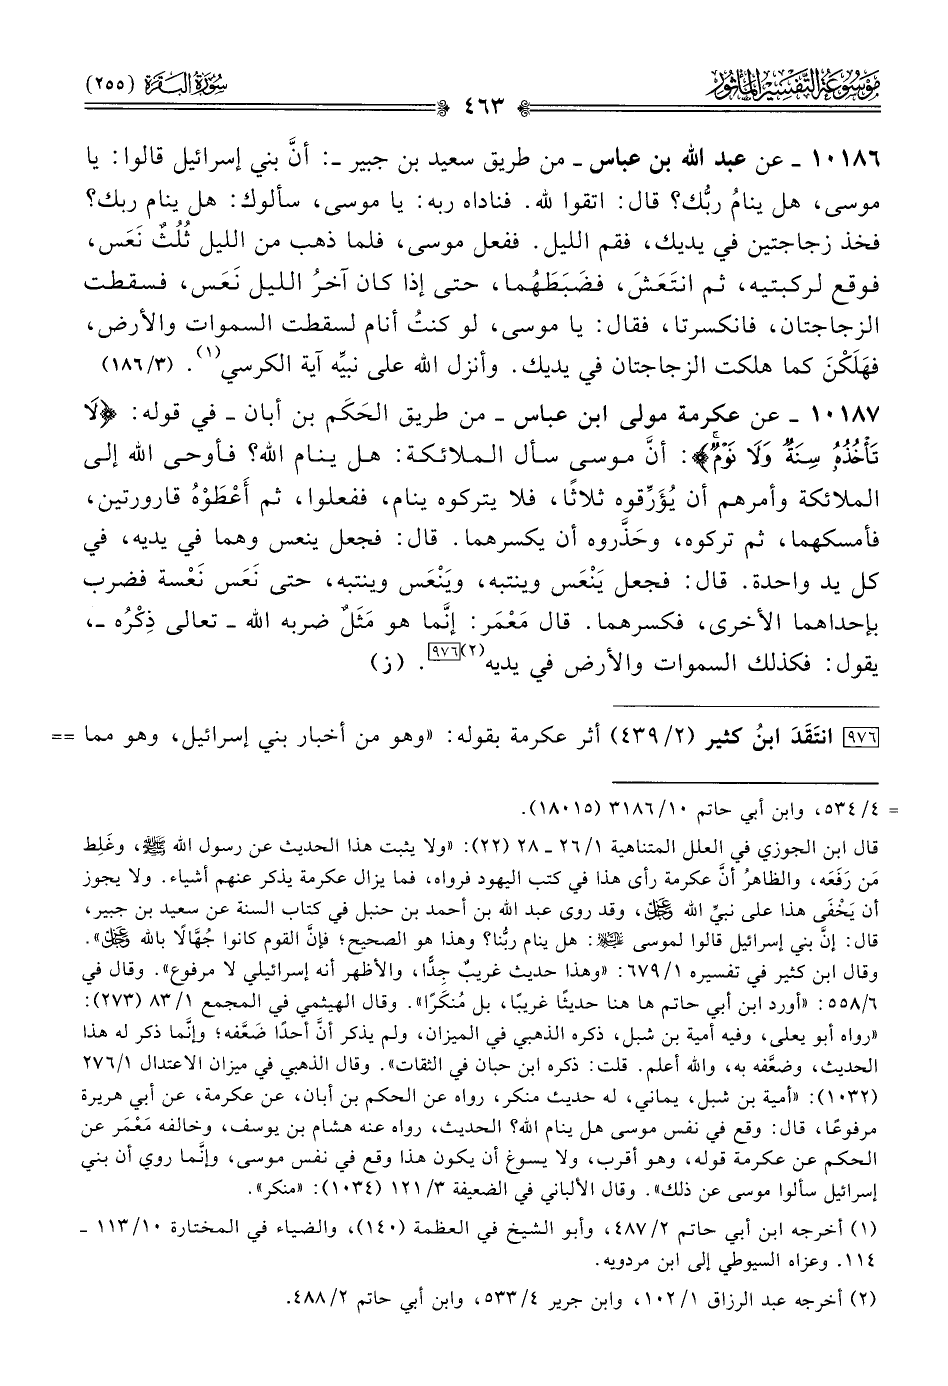 مَوْسُوعَة التَّفْسِير المَأْثُور
سُورَةُ البَقَرَة (٢٥٥)
٤٦٣
١٠١٨٦ ـ عن عبد الله بن عباس ـ من طريق سعيد بن جبير ـ: أنَّ بني إسرائيل قالوا: يا
موسى، هل ينامُ ربُّك؟ قال: اتقوا لله. فناداه ربه: يا موسى، سألوك: هل ينام ربك؟
فخذ زجاجتين في يديك، فقم الليل. ففعل موسى، فلما ذهب من الليل ثُلُثٌ نَعَس،
فوقع لركبتيه، ثم انتَعَشَ، فضَبَطَهُما، حتى إذا كان آخرُ الليل نَعَس، فسقطت
الزجاجتان، فانكسرتا، فقال: يا موسى، لو كنتُ أنام لسقطت السموات والأرض،
فهَلَكْنَ كما هلكت الزجاجتان في يديك. وأنزل الله على نبيِّه آية الكرسي(١). (١٨٦/٣)
١٠١٨٧ ـ عن عكرمة مولى ابن عباس ـ من طريق الحَكَم بن أبان ـ في قوله: ﴿لَا
تَأْخُذُهُۥ سِنَةٌ وَلَا نَوْمٌۚ﴾: أنَّ موسى سأل الملائكة: هل ينام الله؟ فأوحى الله إلى
الملائكة وأمرهم أن يُؤَرِّقوه ثلاثًا، فلا يتركوه ينام، ففعلوا، ثم أَعْطَوْهُ قارورتين،
فأمسكهما، ثم تركوه، وحَذَّروه أن يكسرهما. قال: فجعل ينعس وهما في يديه، في
كل يد واحدة. قال: فجعل يَنْعَس وينتبه، ويَنْعَس وينتبه، حتى نَعَس نَعْسة فضرب
بإحداهما الأخرى، فكسرهما. قال مَعْمَر: إنَّما هو مَثَلٌ ضربه الله ـ تعالى ذِكْرُه ـ،
يقول: فكذلك السموات والأرض في يديه(٢)[٩٧٦]. (ز)
[٩٧٦] انتَقَدَ ابنُ كثير (٤٣٩/٢) أثر عكرمة بقوله: «وهو من أخبار بني إسرائيل، وهو مما ==
= ٥٣٤/٤، وابن أبي حاتم ٣١٨٦/١٠ (١٨٠١٥).
قال ابن الجوزي في العلل المتناهية ٢٦/١ ـ ٢٨ (٢٢): «ولا يثبت هذا الحديث عن رسول الله ﷺ، وغَلِط
مَن رَفَعَه، والظاهرُ أنَّ عكرمة رأى هذا في كتب اليهود فرواه، فما يزال عكرمة يذكر عنهم أشياء. ولا يجوز
أن يَخْفَى هذا على نبيِّ الله ﷿، وقد روى عبد الله بن أحمد بن حنبل في كتاب السنة عن سعيد بن جبير،
قال: إنَّ بني إسرائيل قالوا لموسى ﵇: هل ينام ربُّنا؟ وهذا هو الصحيح؛ فإنَّ القوم كانوا جُهَّالًا بالله ﷿».
وقال ابن كثير في تفسيره ٦٧٩/١: «وهذا حديث غريبٌ جِدًّا، والأظهر أنه إسرائيلي لا مرفوع». وقال في
٥٥٨/٦: «أورد ابن أبي حاتم ها هنا حديثًا غريبًا، بل مُنكَرًا». وقال الهيثمي في المجمع ٨٣/١ (٢٧٣):
«رواه أبو يعلى، وفيه أمية بن شبل، ذكره الذهبي في الميزان، ولم يذكر أنَّ أحدًا ضَعَّفه؛ وإنَّما ذكر له هذا
الحديث، وضعَّفه به، والله أعلم. قلت: ذكره ابن حبان في الثقات». وقال الذهبي في ميزان الاعتدال ٢٧٦/١
(١٠٣٢): «أمية بن شبل، يماني، له حديث منكر، رواه عن الحكم بن أبان، عن عكرمة، عن أبي هريرة
مرفوعًا، قال: وقع في نفس موسى هل ينام الله؟ الحديث، رواه عنه هشام بن يوسف، وخالفه مَعْمَر عن
الحكم عن عكرمة قوله، وهو أقرب، ولا يسوغ أن يكون هذا وقع في نفس موسى، وإنَّما روي أن بني
إسرائيل سألوا موسى عن ذلك». وقال الألباني في الضعيفة ١٢١/٣ (١٠٣٤): «منكر».
(١) أخرجه ابن أبي حاتم ٤٨٧/٢، وأبو الشيخ في العظمة (١٤٠)، والضياء في المختارة ١١٣/١٠ ـ
١١٤. وعزاه السيوطي إلى ابن مردويه.
(٢) أخرجه عبد الرزاق ١٠٢/١، وابن جرير ٥٣٣/٤، وابن أبي حاتم ٤٨٨/٢.